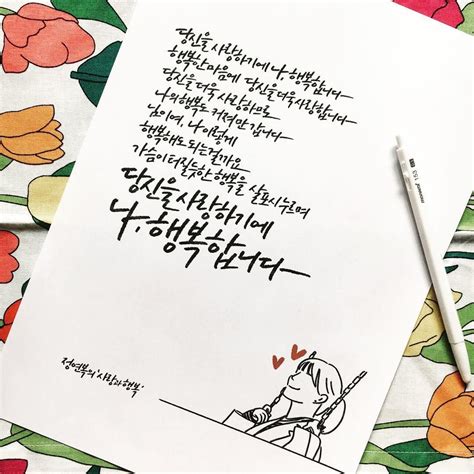 당신을 사랑하기에 나, 행복합니다
행복한 마음에 당신을 더욱 사랑합니다
당신을 더욱 사랑하므로
나의 행복도 커져만 갑니다
님이여, 나 이렇게
행복해도 되는 걸까요
가슴이 터질듯한 행복을 살포시 누르며
당신을 사랑하기에
나, 행복합니다
정연복의 '사랑과 행복'
153